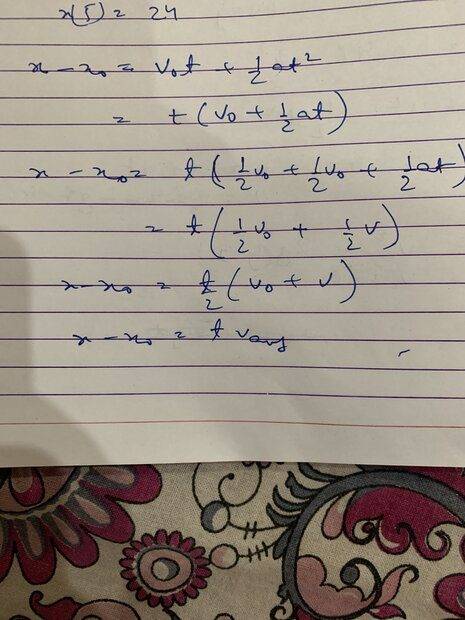 x(5) = 24
x - x₀ = v₀t + 1/2 at²
= t (v₀ + 1/2 at)
x - x₀ = t (1/2 v₀ + 1/2 v₀ + 1/2 at)
= t (1/2 v₀ + 1/2 v)
x - x₀ = t/2 (v₀ + v)
x - x₀ = t v_avg